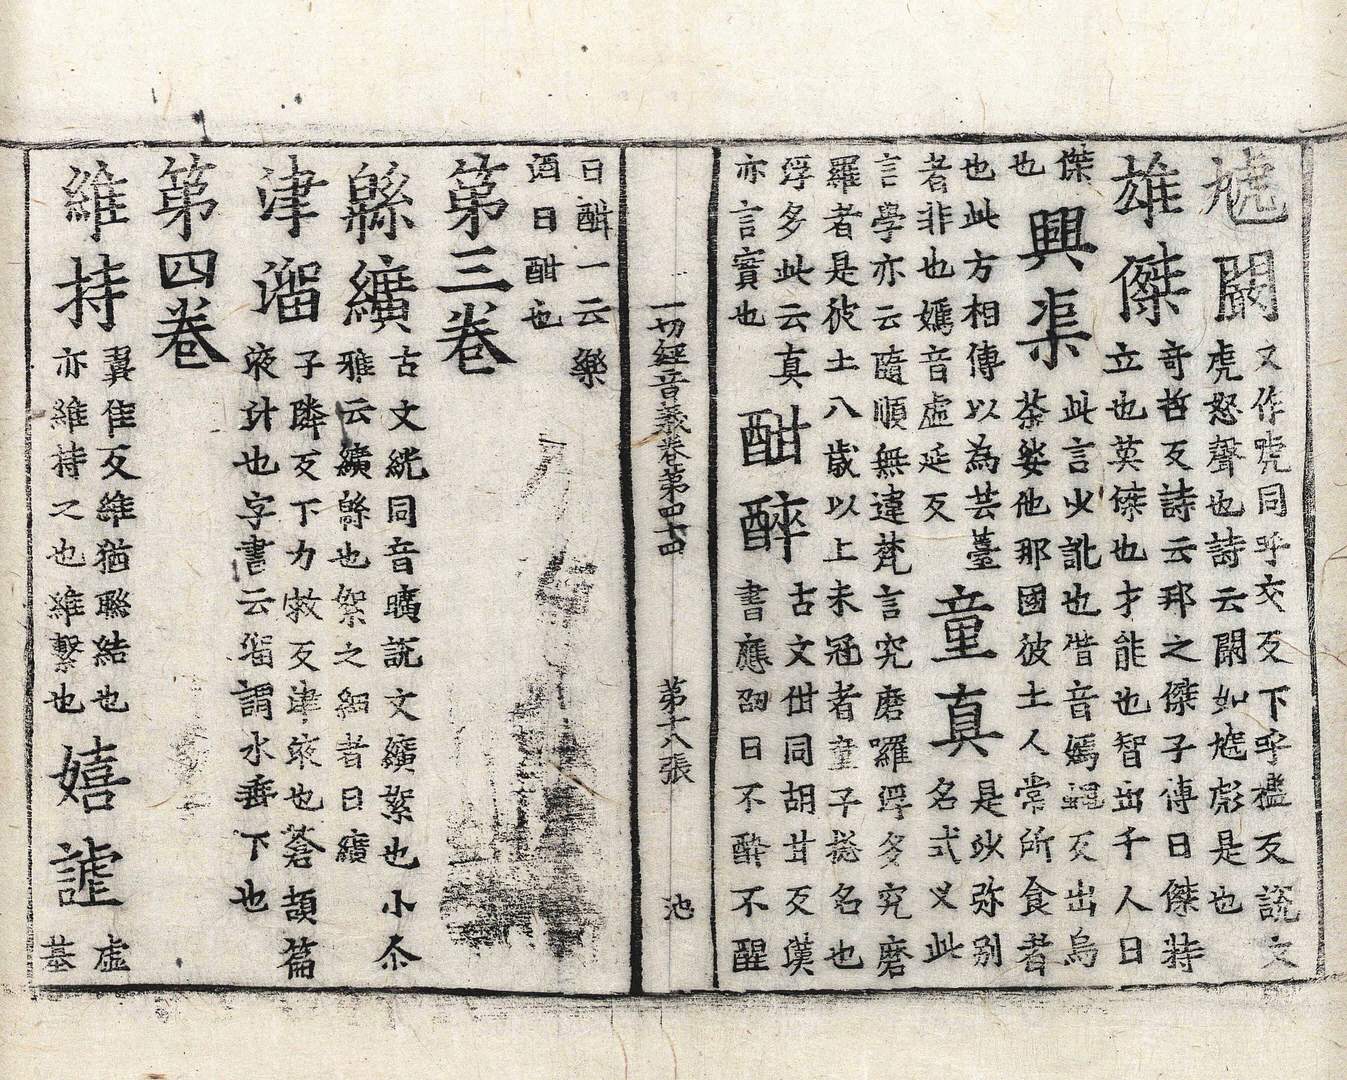 虓闞
又作唬同呼交反下呼檻反說文
虎怒聲也詩云闞如虓彪是也
雄傑
奇哲反詩云邦之傑子傳曰傑特
立也英傑也才能也智出千人曰
傑
也
興渠
此言少訛也借音嫣蠅反出烏
荼娑他那國彼土人常所食者
也此方相傳以為芸薹
者非也嫣音虛延反
童真
是沙弥別
名式叉此
言學亦云隨順無違梵言究磨羅浮多究磨
羅者是彼土八歲以上未冠者童子揔名也
浮多此云真
亦言實也
酣醉
古文佄同胡甘反漢
書應劭曰不醉不醒
一切經音義卷第四十四 第十八張 池
曰酣一云樂
酒曰酣也
第三卷
緜纊
古文絖同音曠說文纊絮也小尒
雅云纊緜也絮之細者曰纊
津溜
子隣反下力救反津液也蒼頡篇
液汁也字書云溜謂水垂下也
第四卷
維持
翼隹反維猶聯結也
亦維持之也維繫也
嬉謔
虛
基